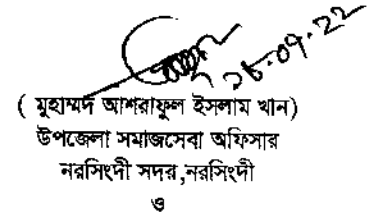 ২৮.০৭.২২
( মুহাম্মদ আশরাফুল ইসলাম খান)
উপজেলা সমাজসেবা অফিসার
নরসিংদী সদর,নরসিংদী
ও